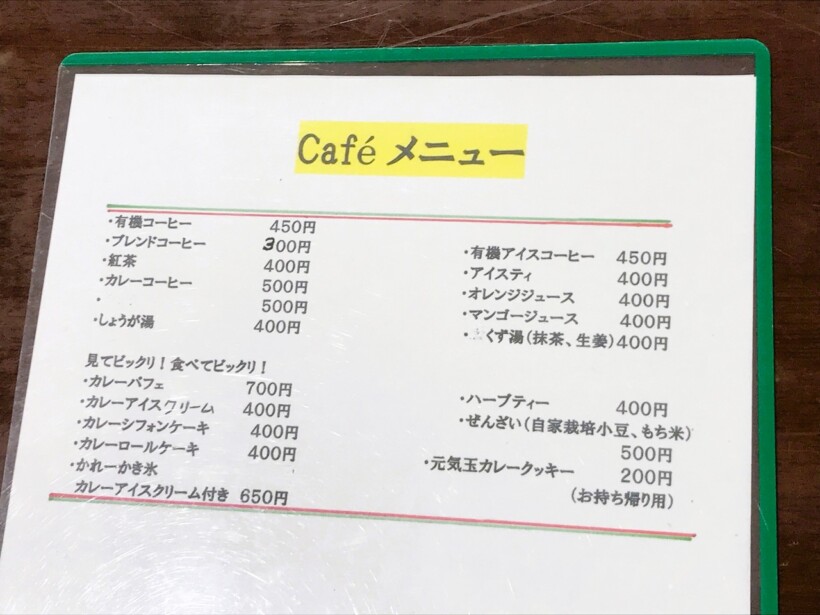 Café メニュー
・有機コーヒー 450円
・ブレンドコーヒー 300円
・紅茶 400円
・カレーコーヒー 500円
・ 500円
・しょうが湯 400円
見てビックリ！食べてビックリ！
・カレーパフェ 700円
・カレーアイスクリーム 400円
・カレーシフォンケーキ 400円
・カレーロールケーキ 400円
・かれーかき氷
カレーアイスクリーム付き 650円
・有機アイスコーヒー 450円
・アイスティ 400円
・オレンジジュース 400円
・マンゴージュース 400円
・くず湯（抹茶、生姜）400円
・ハーブティー 400円
・ぜんざい（自家栽培小豆、もち米）
500円
・元気玉カレークッキー 200円
（お持ち帰り用）